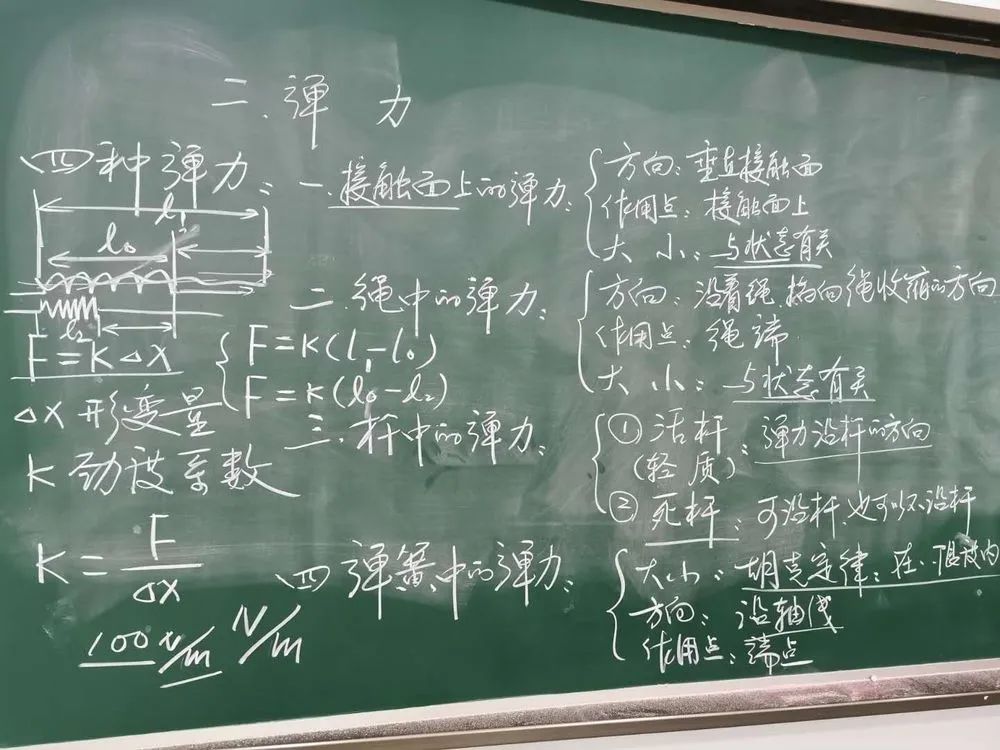 二.弹 力
四种弹力:
一.接触面上的弹力:
方向:垂直接触面
作用点:接触面上
大 小:与状态有关
l₁
l₀
l₂
二.绳中的弹力:
方向:沿着绳,指向绳收缩的方向
作用点:绳端
大 小:与状态有关
F=K△X
F=K(l₁-l₀)
F=K(l₀-l₂)
△X 形变量
K 劲度系数
三.杆中的弹力:
① 活杆
(轻 质):弹力沿杆的方向
② 死杆:可沿杆,也可以不沿杆
K=F/△X
100 N/m N/m
四 弹簧中的弹力:
大小:胡克定律:在..限度内
方向:沿轴线
作用点:端点